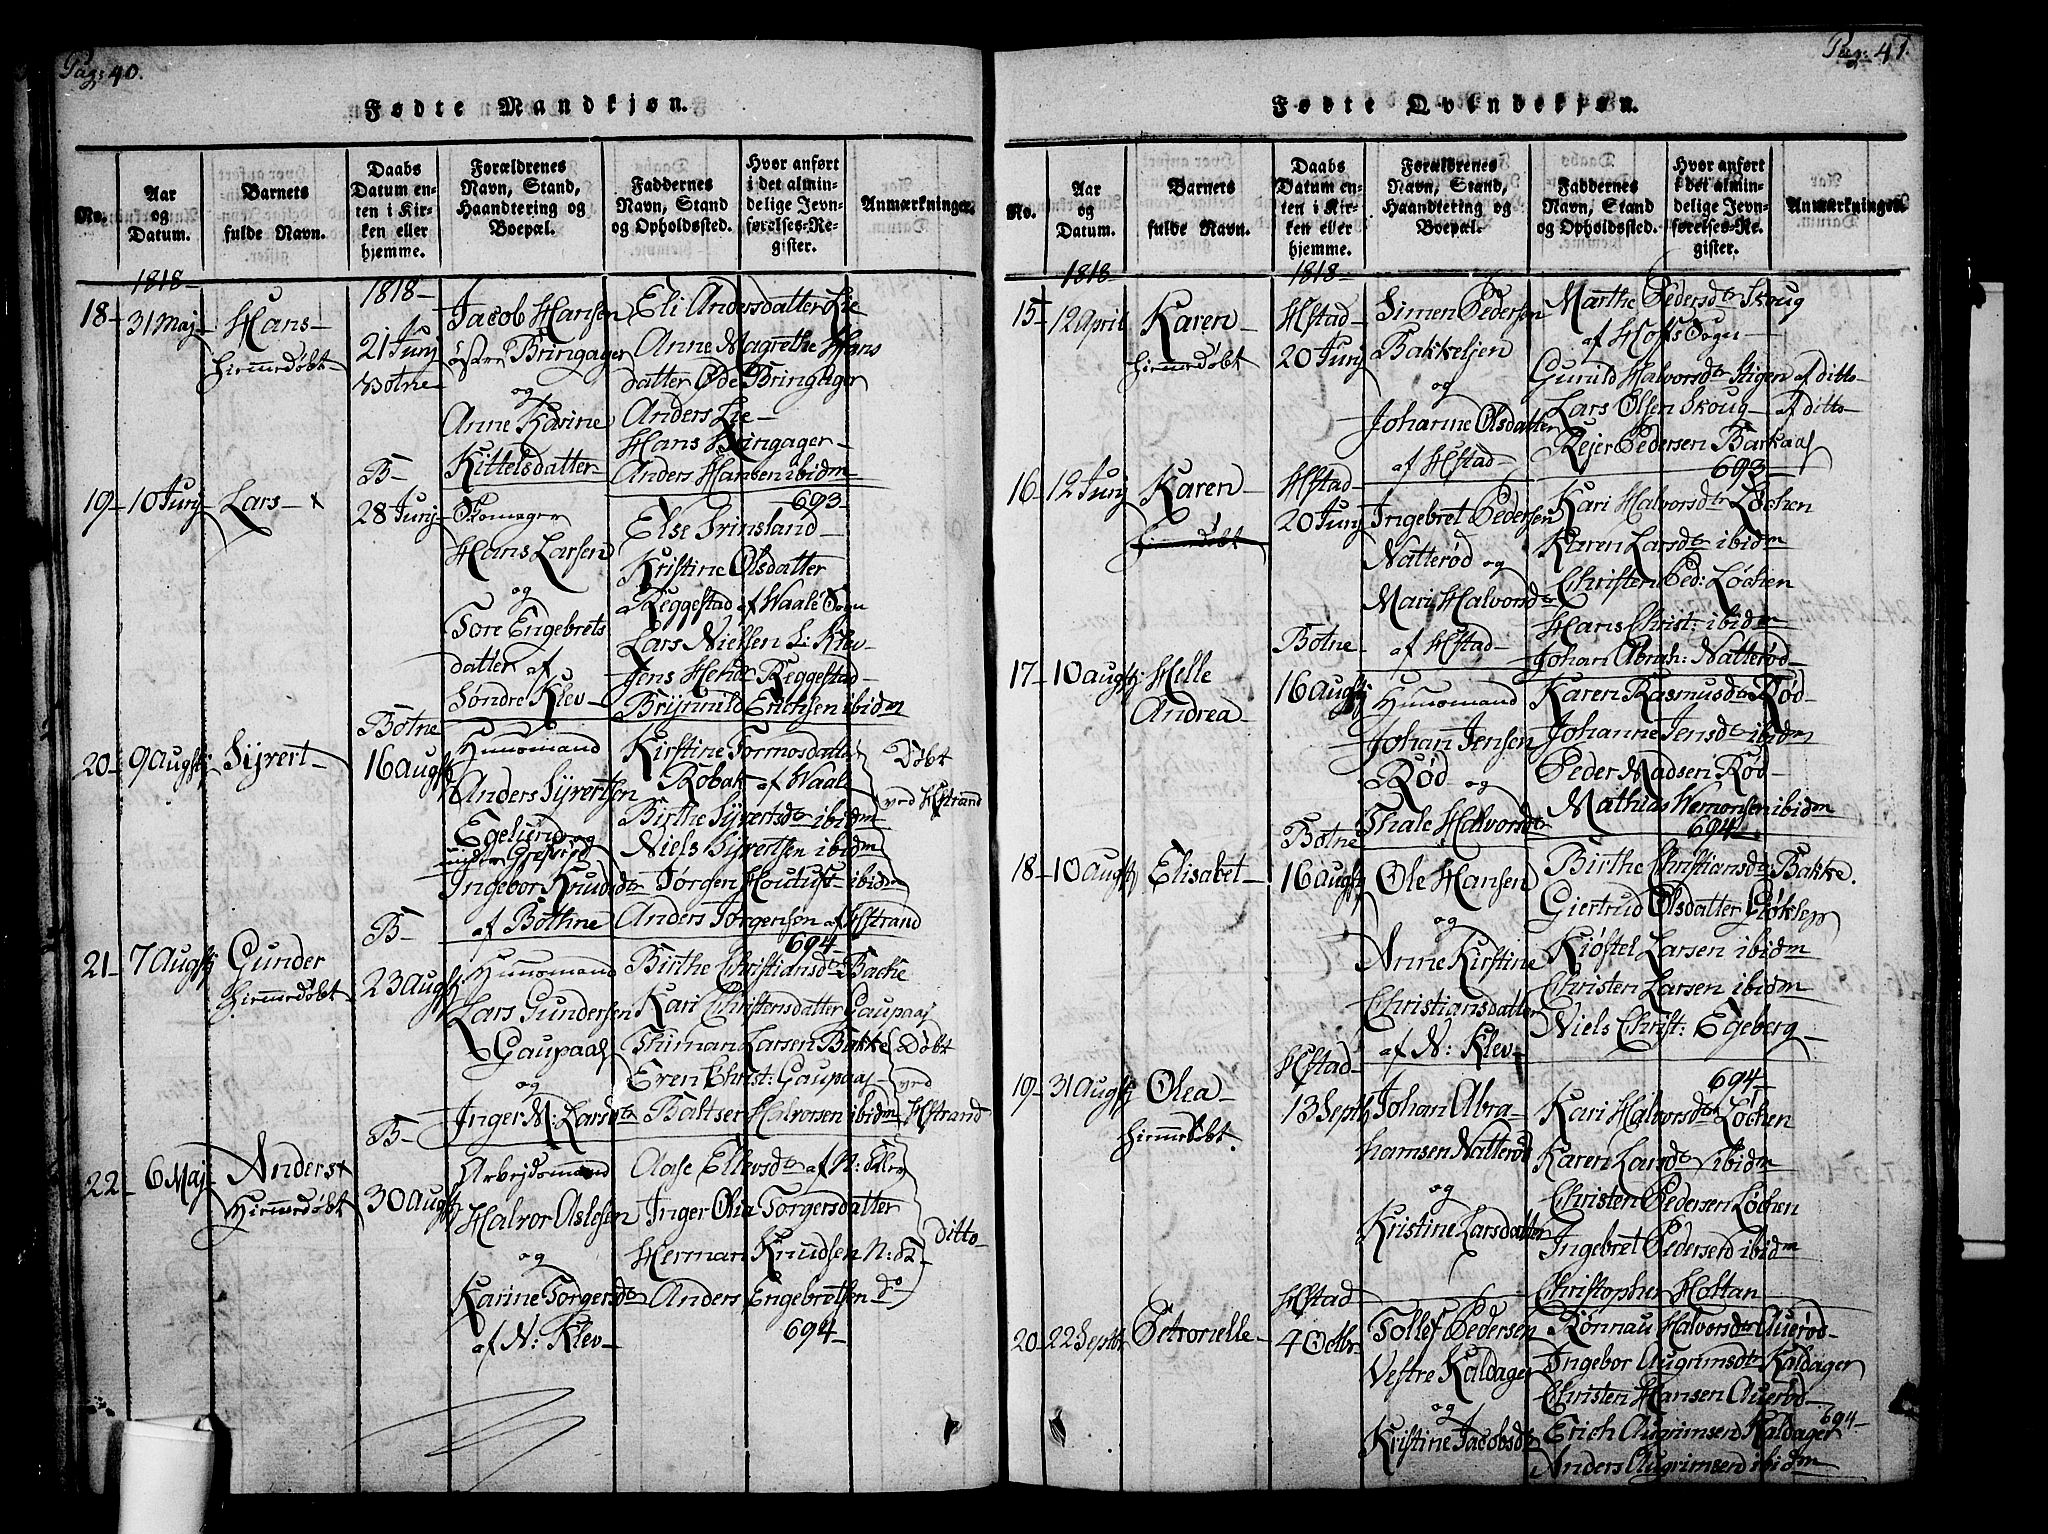 Pag: 40.
Fødte Mandkjøn.
No.
Aar
og
Datum.
Barnets
fulde Navn.
Daabs
Datum en-
ten i Kir-
ken eller
hjemme.
Forældrenes
Navn, Stand,
Haandtering og
Boepæl.
Faddernes
Navn, Stand
og Opholdssted.
Hvor anført
i det almin-
delige Jevn-
førelses-Re-
gister.
Anmærkninger.
1818
18
31 Maj
Hans
hiemmedøbt
1818
21 Junj
Botne
Jacob Hansen
østre Bringager
og
Anne Karine
Kittelsdatter
Eli Andersdatter Lie
Anne Magrethe Hans
datter Øde Bringager
Anders Lie
Hans Bringager
Anders Hansen ibidm
693
19
10 Junj
Lars
B
28 Junj
Skomager
Hans Larsen
og
Tore Engebrets
datter af
Søndre Klev
Else Trinsland
Kristine Olsdatter
Reggestad af Waale Sogn
Lars Nielsen L: Klev
Jens Hend Reggestad
Brynnild Erichsen ibidm
20
9 Augstj
Syvert
Botne
16 Augstj
Huusmand
Anders Syvertsen
Egelund og
Ingebor Knudsd
af Bothne
Kirstine Tormosdatter
Robak af Waale
Birthe Syvertsdtr ibidm
Niels Syvertsen ibidm
Jørgen Houtuft ibidm
Anders Jørgensen af Hstrand
694
Døbt
ved Hstrand
21
7 Augstj
Gunder
hiemmedøbt
B
23 Augstj
Huusmand
Lars Gundersen
Gaupaas
og
Inger M: Larsdtr
Birthe Christiansdtr Backe
Kari Christensdatter Gaupaas
Thurman Larsen Bakke
Even Christ: Gaupaas
Baltser Halvorsen ibidm
Døbt
ved
Hstrand
22
6 Maj
Anders
Hiemmedøbt
B
30 Augstj
Arbejdsmand
Halvor Aslesen
og
Karine Torgersdtr
af N: Klev
Aase Ellevsdtr af N: Klev
Inger Olia Torgersdatter
Herman Knudsen N: Kl
Anders Engebretsen do
694
ditto
Pag: 41.
Fødte Qvindekjøn.
No.
Aar
og
Datum.
Barnets
fulde Navn.
Daabs
Datum en-
ten i Kir-
ken eller
hjemme.
Forældrenes
Navn, Stand,
Haandtering og
Boepæl.
Faddernes
Navn, Stand
og Opholdssted.
Hvor anført
i det almin-
delige Jevn-
førelses-Re-
gister.
Anmærkninger.
1818
15
12 April
Karen
hiemmedøbt
1818
Hstad
20 Junj
Simen Pedersen
Bakkeljen
og
Johanne Olsdatter
af Hstad
Marthe Pedersdtr Skoug
af Hoffs Sogn
Gunild Halvorsdtr Stigen af ditto
Lars Olsen Skoug A ditto
Rejer Pedersen Barkaas
693
16
12 Junj
Karen
hiemmedøbt
Hstad
20 Junj
Ingebret Pedersen
Natterød og
Mari Halvorsdtr
af Hstad
Kari Halvorsdtr Løchen
Karen Larsdtr ibidm
Christen Ped: Løchen
Hans Christ: ibidm
Johan Abrah: Natterød
17
10 Augstj
Helle
Andrea
Botne
16 Augstj
Huusmand
Johan Jensen
Rød og
Thale Halvorsdtr
Karen Rasmusdtr Rød
Johanne Jensdtr ibidm
Peder Madsen Rød
Mathias Wemonsen ibidm
694
18
10 Augstj
Elisabet
Botne
16 Augstj
Ole Hansen
og
Anne Kirstine
Christiansdatter
af N: Klev
Birthe Christiansdtr Bakke.
Giertrud Olsdatter Gøklep
Kiøstel Larsen ibidm
Christen Larsen ibidm
Niels Christ: Egeberg
694
19
31 Augstj
Olea
hiemmedøbt
Hstad
13 Septbr
Johan Abra-
hamsen Natterød
og
Kristine Larsdatter
Kari Halvorsdtr Løchen
Karen Larsdtr ibidm
Christen Pedersen Løchen
Ingebret Pedersen ibidm
Christopher Holtan
20
22 Septbr
Petronelle
Hstad
4 Octbr
Tollef Pedersen
Vestre Kaldager
og
Kristine Jacobsdtr
Rønnau Halvorsdtr Auerød
Ingebor Augrimsdtr Kaldager
Christen Hansen Auerød
694
Erich Augrimsen Kaldager
Anders Augrimsen ibidm